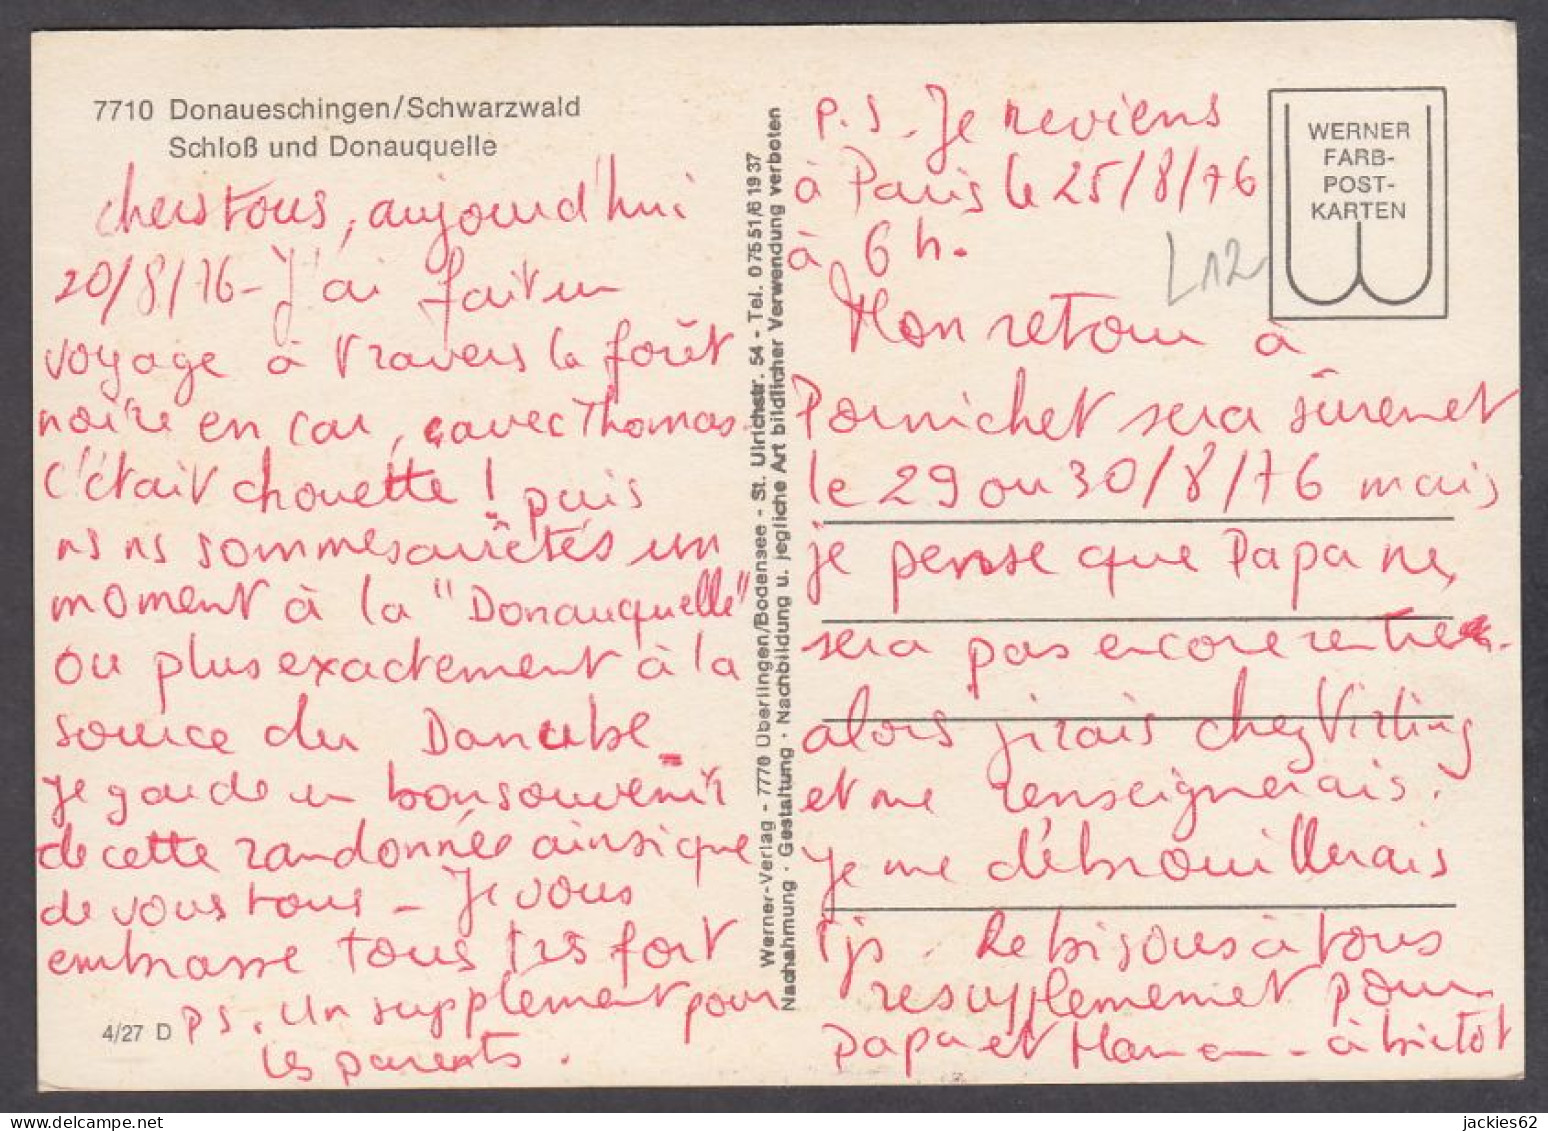 7710 Donaueschingen/Schwarzwald
Schloß und Donauquelle
chers tous, aujourd'hui
20/8/76 - J'ai fait un
voyage à travers la forêt
noire en car, avec Thomas.
C'était chouette ! puis
ns ns sommes arrêtés un
moment à la "Donauquelle"
ou plus exactement à la
source du Danube.
Je garde un bon souvenir
de cette randonnée ainsi que
de vous tous - Je vous
embrasse tous trs fort
ps. Un supplément pour
les parents.
4/27 D
Werner-Verlag - 7770 Überlingen/Bodensee - St. Ulrichstr. 54 - Tel. 07551/61937
Nachahmung · Gestaltung · Nachbildung u. jegliche Art bildlicher Verwendung verboten
P.S - Je reviens
à Paris le 25/8/76
à 6 h.
Mon retour à
Pornichet sera sûremet
le 29 ou 30/8/76 mais
je pense que Papa ne
sera pas encore rentré.
alors j'irais chez Virling
et me renseignerais.
Je me débrouillerais
tjs. Rebisous à tous
resupplémeniet pour
Papa et Maman - à bietôt
WERNER
FARB-
POST-
KARTEN
L12
jackies62